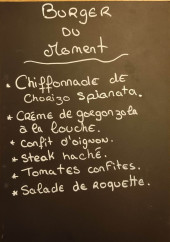 BURGER
DU
Moment
* Chiffonnade DE
Chorizo Splanata.
* CRÈME DE gorgonzola
à la louche.
* confit d'oignon.
* steak haché.
* Tomates confites.
* Salade de Roquette.